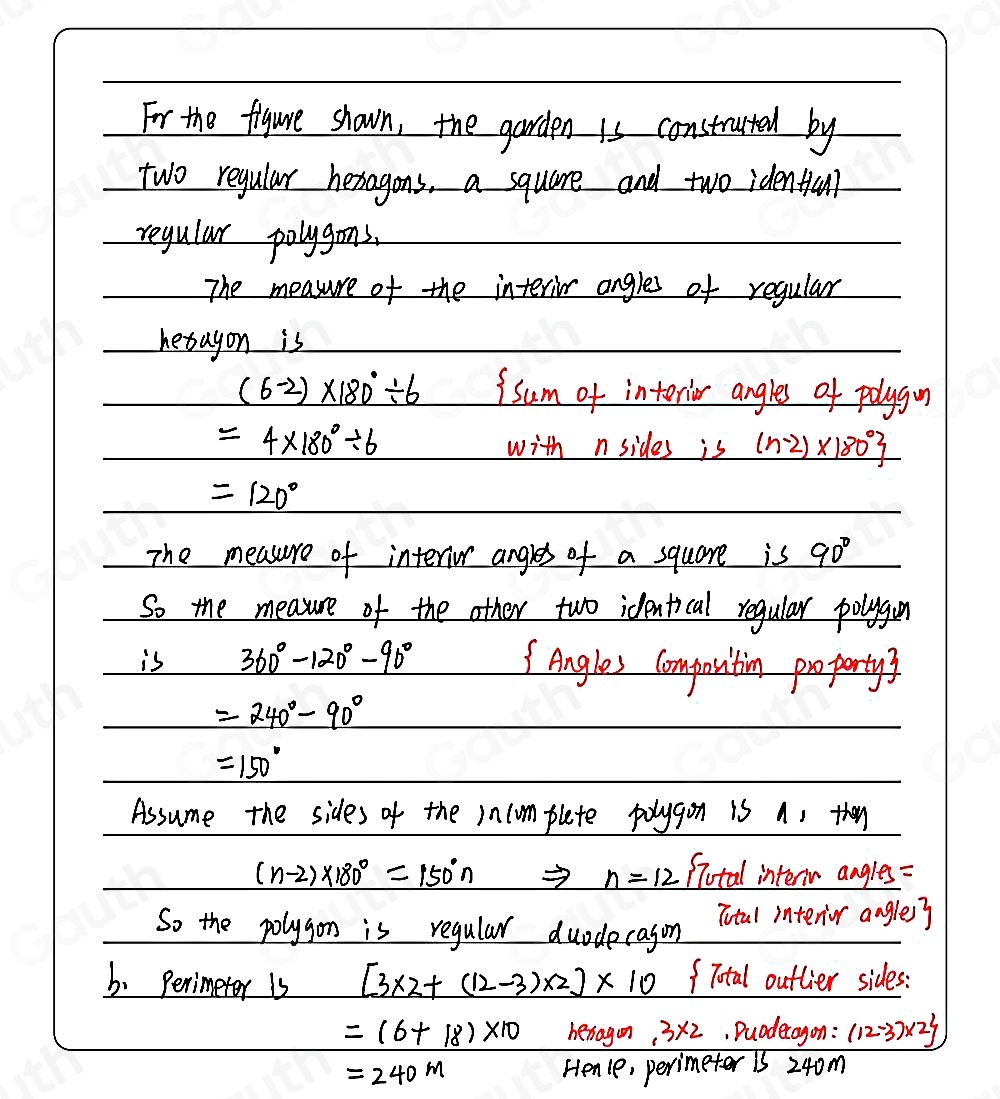 For the figure shown, the garden is constructed by
two regular hexagons, a square and two identical
regular polygons.
The measure of the interior angles of regular
hexagon is
(6-2)×180°÷6 {Sum of interior angles of polygon
= 4×180°÷6 with n sides is (n-2)×180°}
= 120°
The measure of interior angles of a square is 90°
So the measure of the other two identical regular polygon
is 360°-120°-90° {Angles Composition property}
= 240°-90°
= 150°
Assume the sides of the incomplete polygon is n, then
(n-2)×180° = 150°n ⇒ n=12 {Total interior angles =
So the polygon is regular duodecagon Total interior angles}
b. Perimeter is [3×2+(12-3)×2]×10 {Total outlier sides:
= (6+18)×10 hexagon, 3×2, Duodecagon: (12-3)×2}
= 240 m Hence, perimeter is 240m